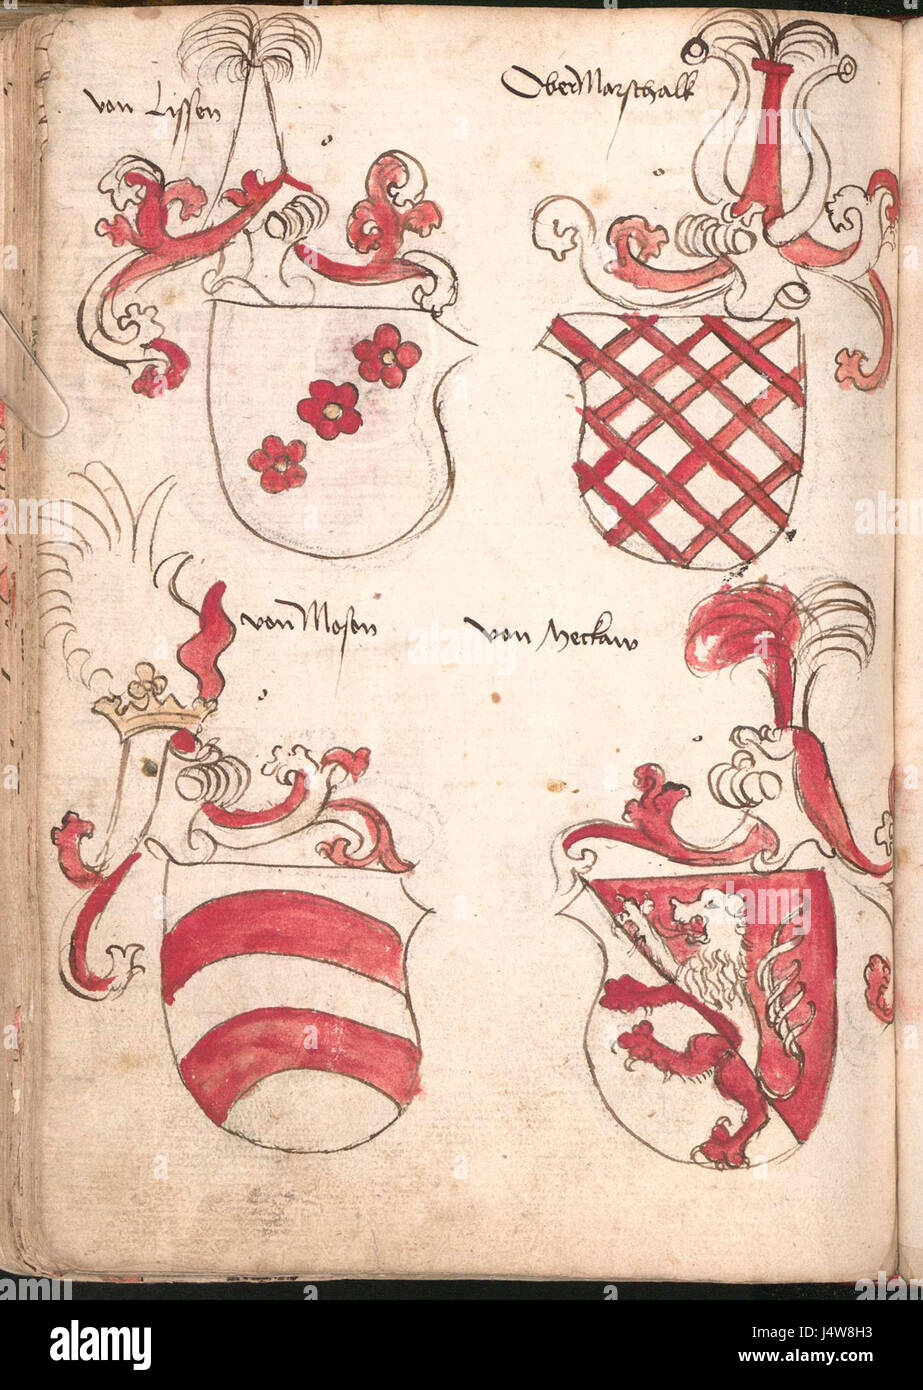 von Lissen
OberMarschalk
von Mosen
von Heckaw
alamy stock photo
Image ID: J4W8H3
www.alamy.com